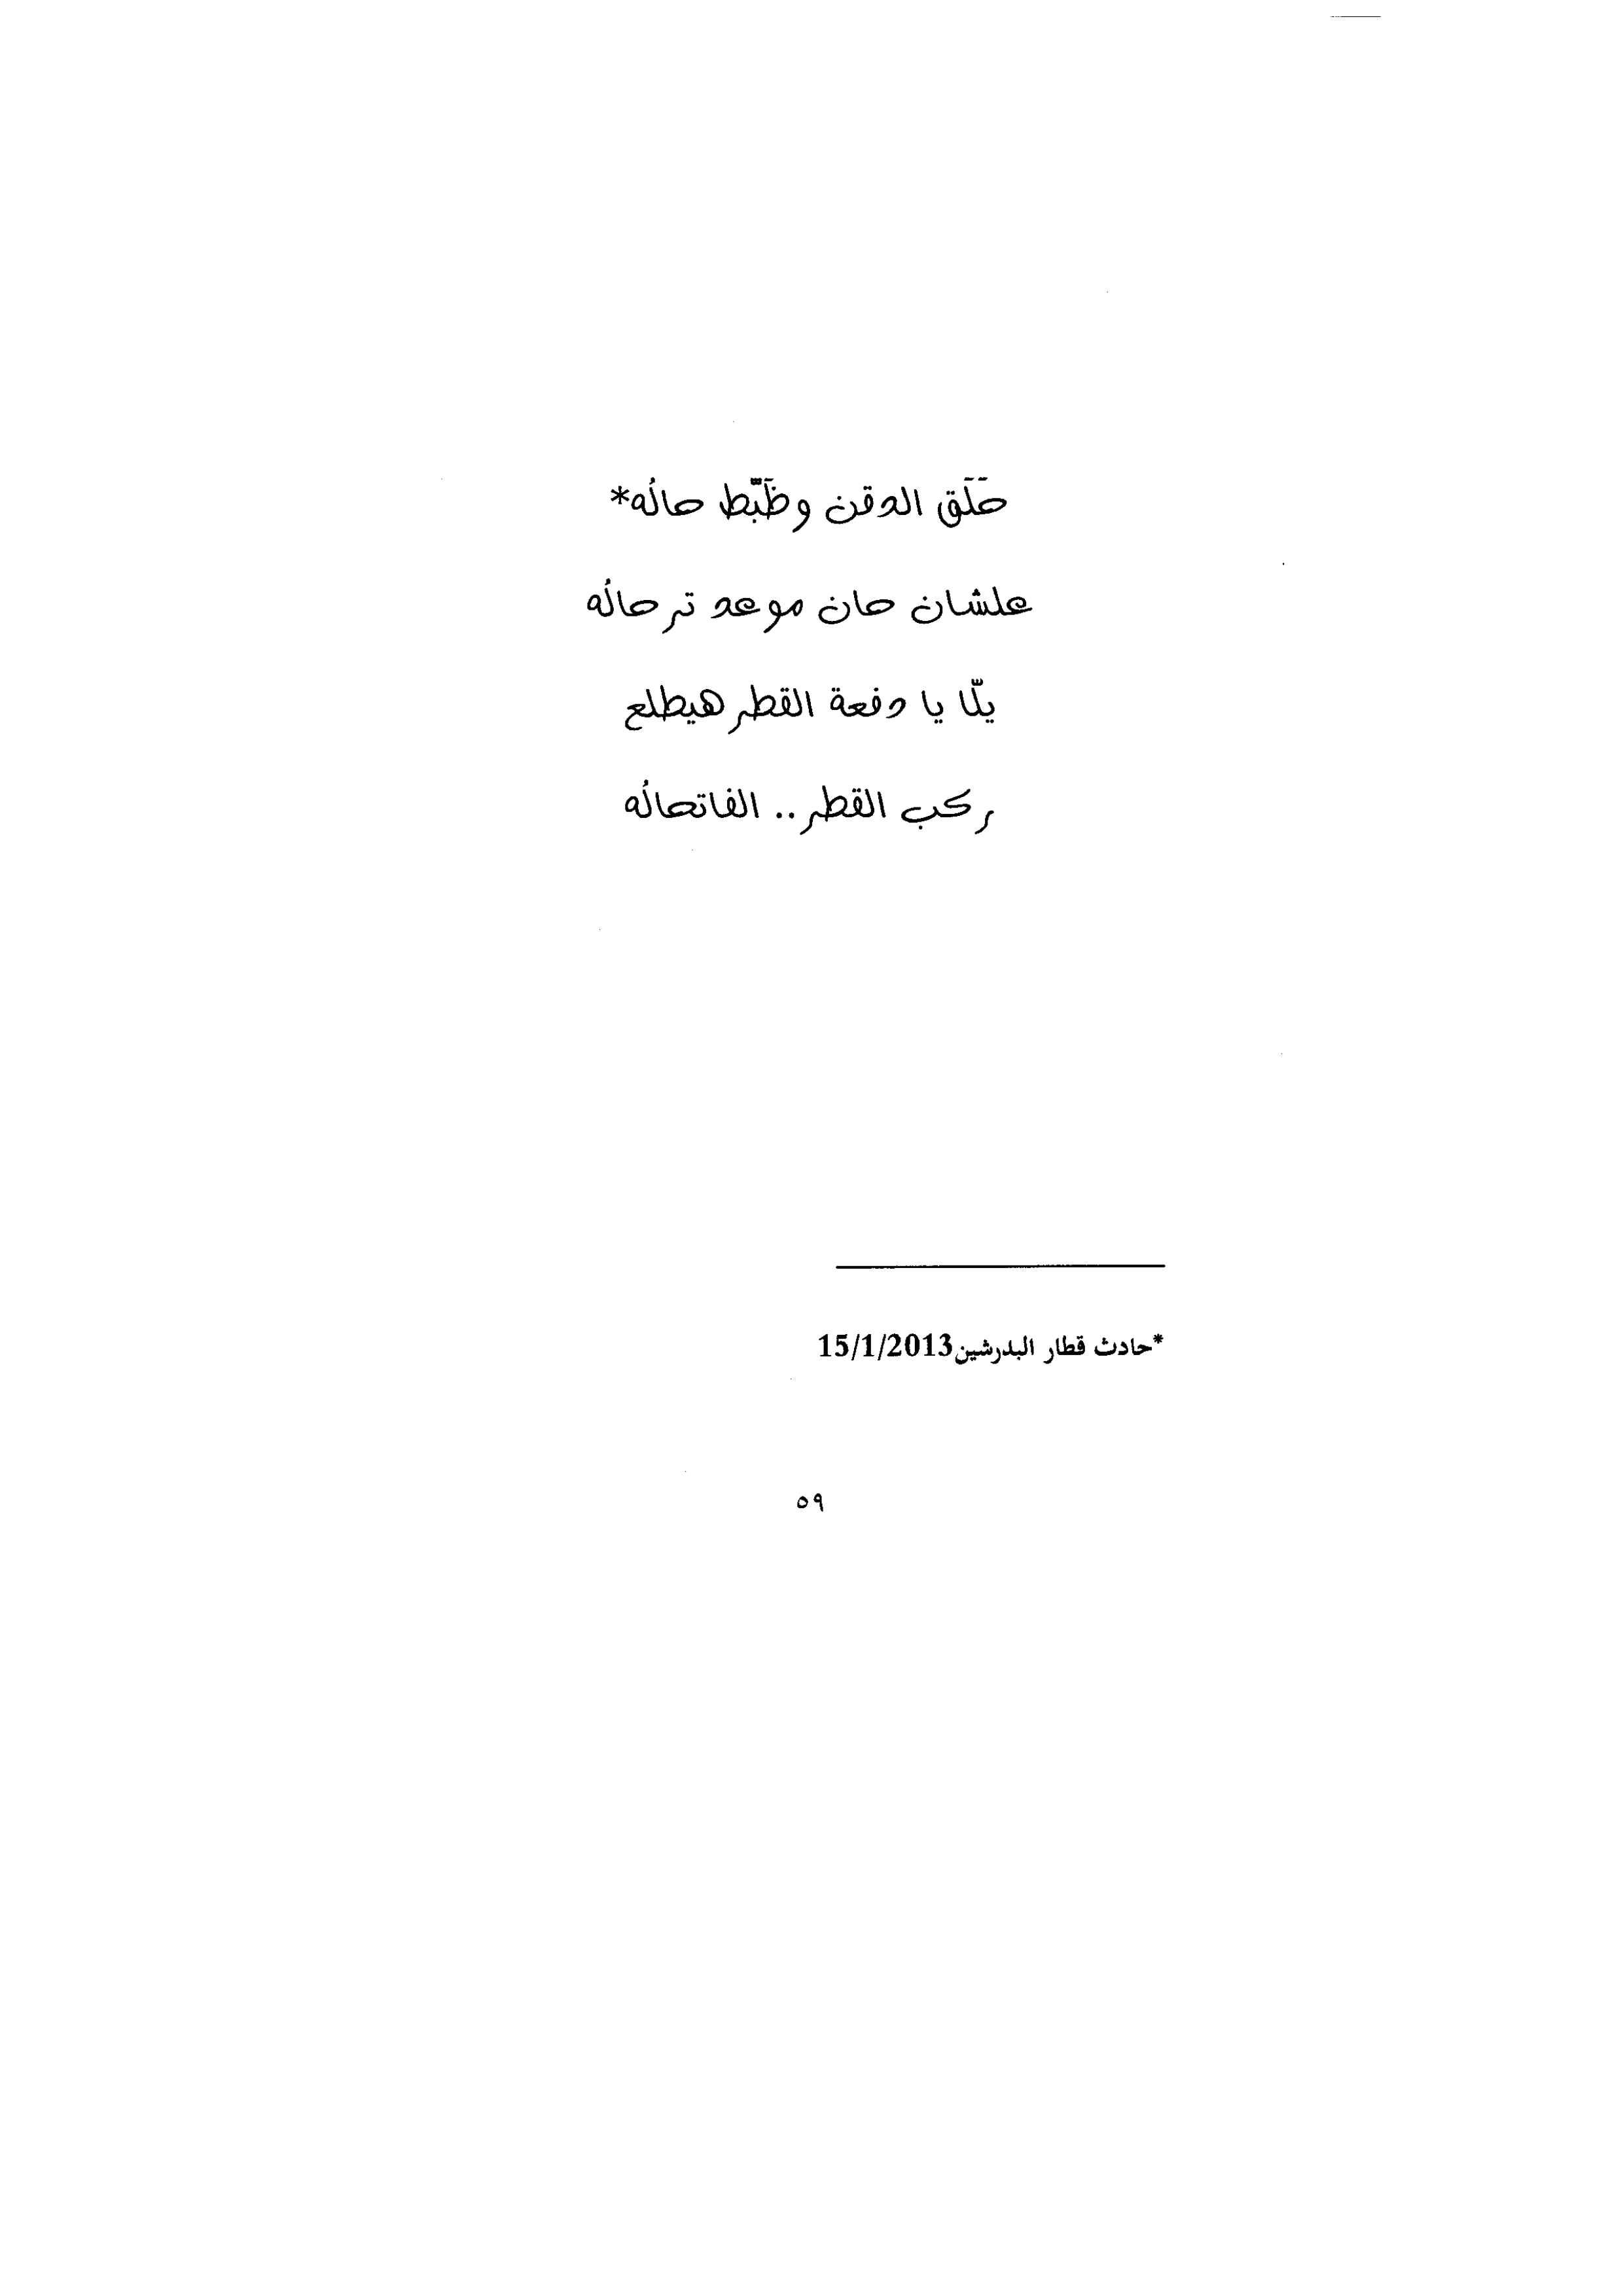 حَلَق الدقن وظَبَّط حالُه*
علشان حان موعد ترحالُه
يلّا يا دفعة القطر هيطلع
ركب القطر.. الفاتحالُه
*حادث قطار البدرشين15/1/2013
٥٩